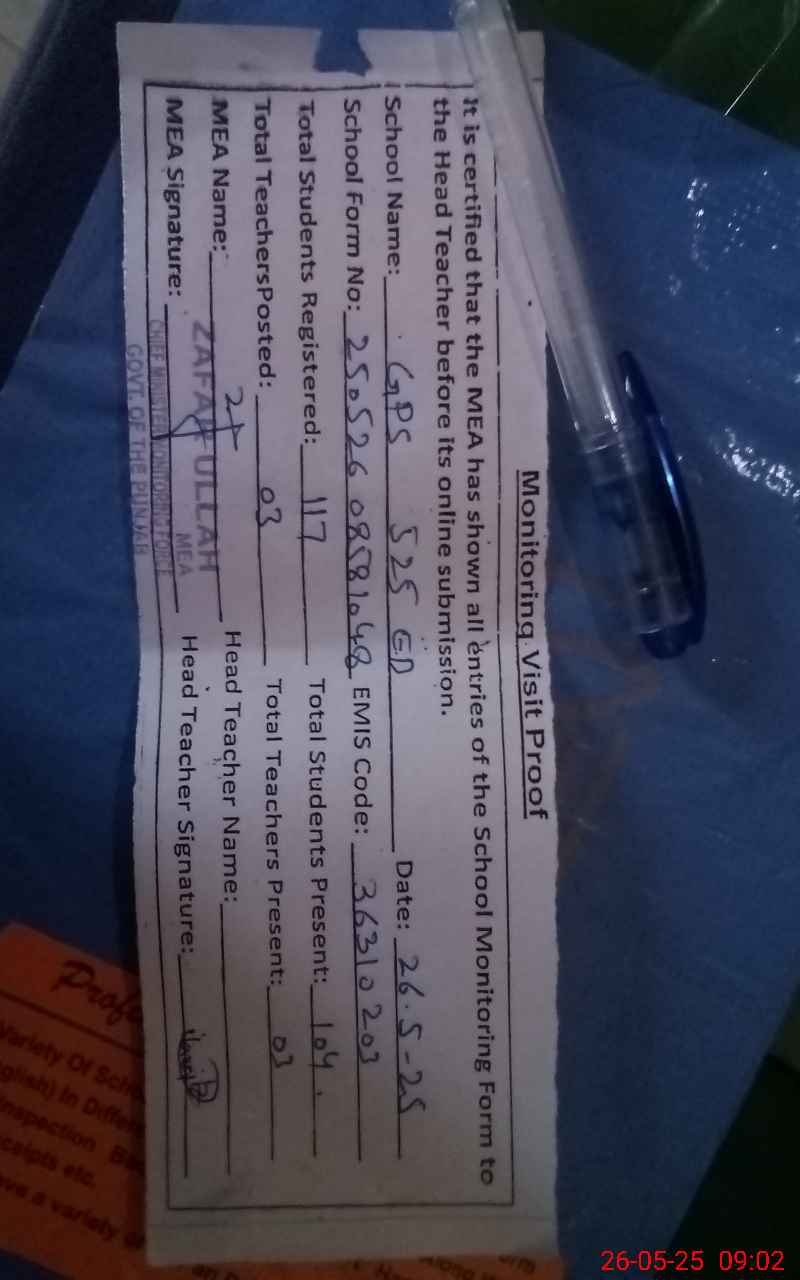 Monitoring Visit Proof
It is certified that the MEA has shown all entries of the School Monitoring Form to
the Head Teacher before its online submission.
School Name: GPS 525 EB Date: 26.5-25
School Form No: 250526 08581048 EMIS Code: 36310203
Total Students Registered: 117 Total Students Present: 104
Total TeachersPosted: 03 Total Teachers Present: 03
MEA Name: ZAFARULLAH Head Teacher Name:
MEA
MEA Signature: Head Teacher Signature:
CHIEF MINISTER MONITORING FORCE
GOVT. OF THE PUNJAB
Variety Of
In
Inspection
etc.
a variety
26-05-25 09:02